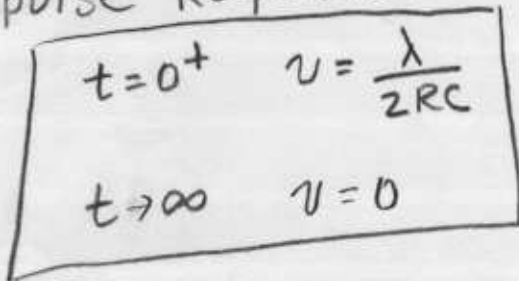 t = 0⁺ v = λ/2RC
t → ∞ v = 0